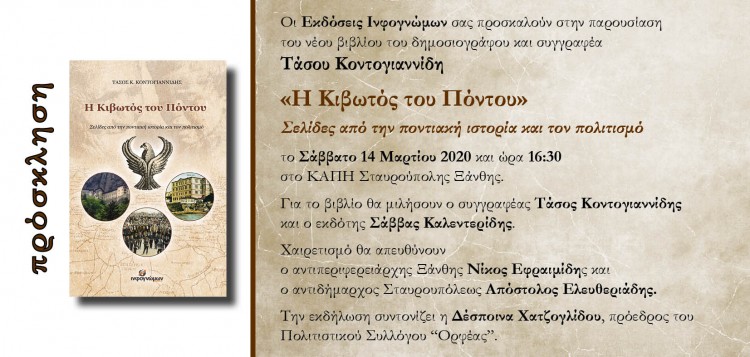 πρόσκληση
ΤΑΣΟΣ Κ. ΚΟΝΤΟΓΙΑΝΝΙΔΗΣ
Η Κιβωτός του Πόντου
Σελίδες από την ποντιακή ιστορία και τον πολιτισμό
ινφογνώμων
Οι Εκδόσεις Ινφογνώμων σας προσκαλούν στην παρουσίαση
του νέου βιβλίου του δημοσιογράφου και συγγραφέα
Τάσου Κοντογιαννίδη
«Η Κιβωτός του Πόντου»
Σελίδες από την ποντιακή ιστορία και τον πολιτισμό
το Σάββατο 14 Μαρτίου 2020 και ώρα 16:30
στο ΚΑΠΗ Σταυρούπολης Ξάνθης.
Για το βιβλίο θα μιλήσουν ο συγγραφέας Τάσος Κοντογιαννίδης
και ο εκδότης Σάββας Καλεντερίδης.
Χαιρετισμό θα απευθύνουν
ο αντιπεριφερειάρχης Ξάνθης Νίκος Εφραιμίδης και
ο αντιδήμαρχος Σταυρουπόλεως Απόστολος Ελευθεριάδης.
Την εκδήλωση συντονίζει η Δέσποινα Χατζογλίδου, πρόεδρος του
Πολιτιστικού Συλλόγου “Ορφέας”.